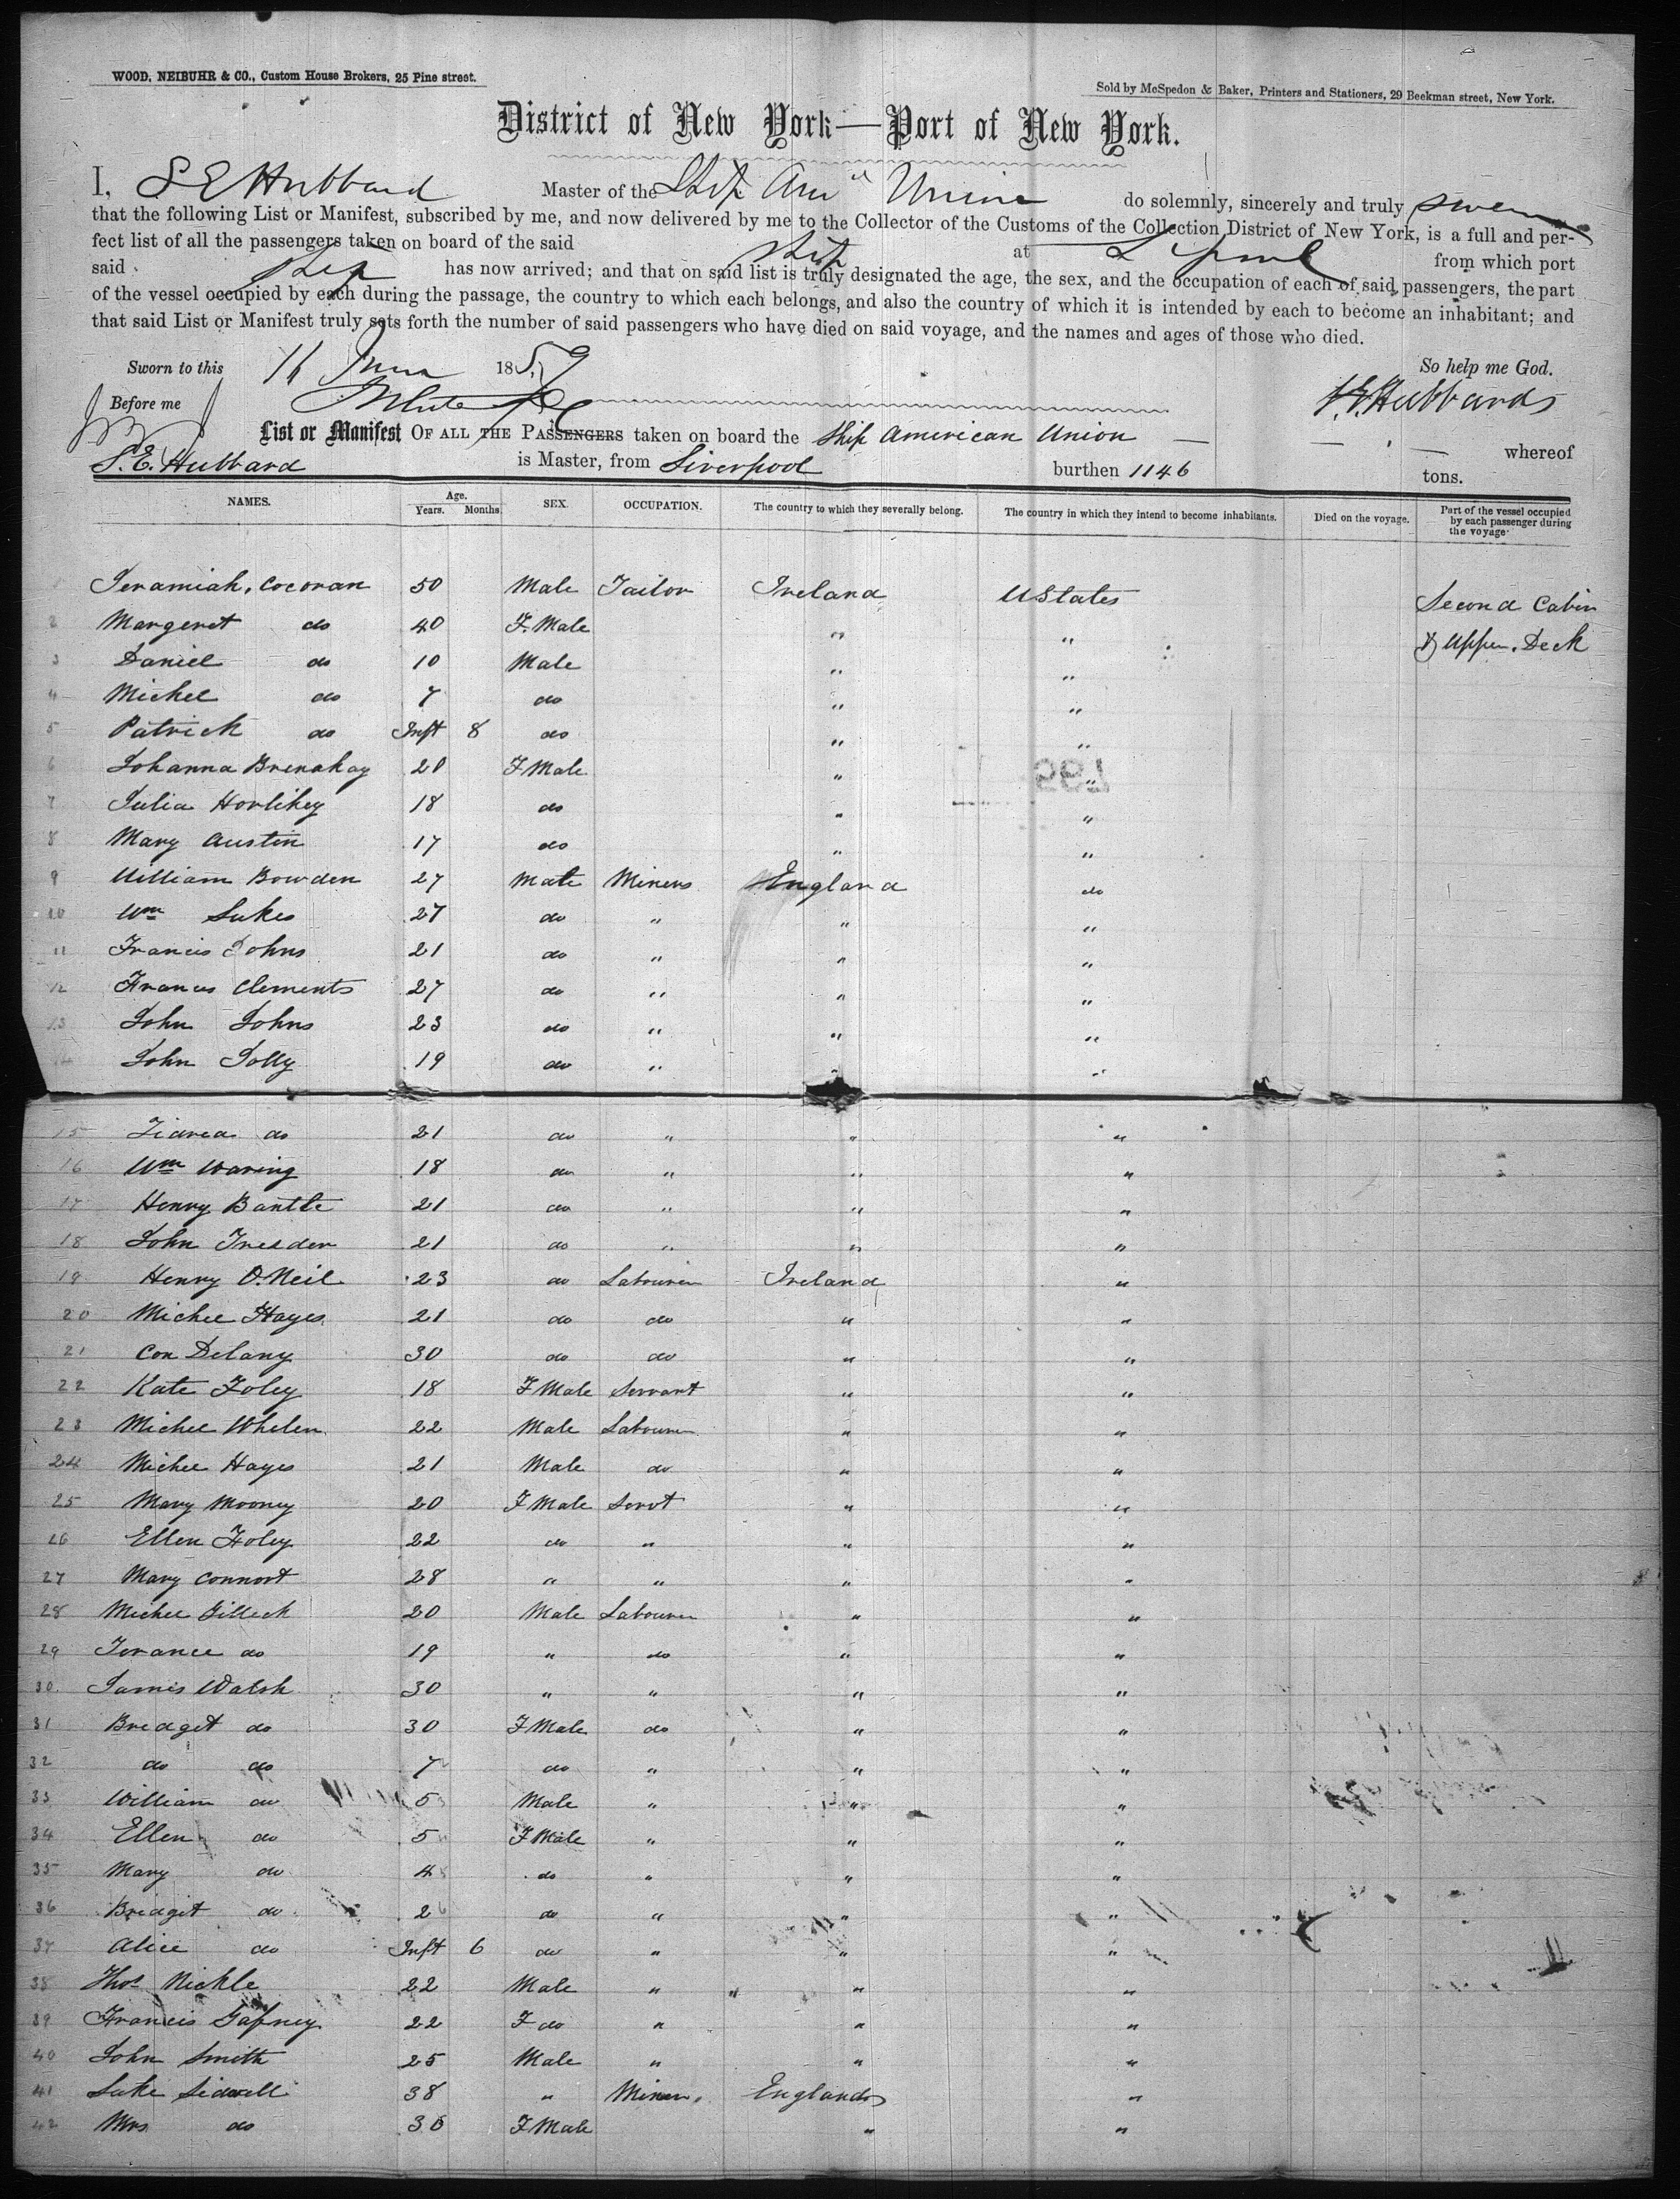 WOOD, NEIBUHR & CO., Custom House Brokers, 25 Pine street.
Sold by McSpedon & Baker, Printers and Stationers, 29 Beekman street, New York.
District of New York—Port of New York.
I, S E Hubbard Master of the Ship Amn Union do solemnly, sincerely and truly swear
that the following List or Manifest, subscribed by me, and now delivered by me to the Collector of the Customs of the Collection District of New York, is a full and per-
fect list of all the passengers taken on board of the said Ship at Lpool from which port
said Ship has now arrived; and that on said list is truly designated the age, the sex, and the occupation of each of said passengers, the part
of the vessel occupied by each during the passage, the country to which each belongs, and also the country of which it is intended by each to become an inhabitant; and
that said List or Manifest truly sets forth the number of said passengers who have died on said voyage, and the names and ages of those who died.
Sworn to this 16 June 1859 So help me God.
Before me S.E. Hubbard
List or Manifest OF ALL THE PASSENGERS taken on board the Ship American Union whereof
S.E. Hubbard is Master, from Liverpool burthen 1146 tons.
NAMES. Age. Years. Months. SEX. OCCUPATION. The country to which they severally belong. The country in which they intend to become inhabitants. Died on the voyage. Part of the vessel occupied by each passenger during the voyage
1 Jeramiah. Cocoran 50 Male Tailor Ireland UStates Second Cabin
2 Margeret do 40 F. Male " " & Upper. Deck
3 Daniel do 10 Male " "
4 Michel do 7 do " "
5 Patrick do Inft 8 do " "
6 Johanna 20 F Male " "
7 Julia Horlihey 18 do " "
8 Mary Austin 17 do " "
9 William Bowden 27 Male Miners England do
10 Wm Lukes 27 do " " "
11 Francis Johns 21 do " " "
12 Francis Clements 27 do " " "
13 John Johns 23 do " " "
14 John Jolly 19 do " " "
15 do 21 do " " "
16 Wm Waring 18 do " " "
17 Henry Bantte 21 do " " "
18 John Tresder 21 do " " "
19 Henry O.Neil 23 do Labourer Ireland "
20 Michel Hayes 21 do do " "
21 Con Delany 30 do do " "
22 Kate Foley 18 F Male Servant " "
23 Michel Whelen 22 Male Labourer " "
24 Michel Hayes 21 Male do " "
25 Mary Mooney 20 F Male Servt " "
26 Ellen Foley 22 do " " "
27 Mary Connort 28 " " " "
28 Michel Gilleck 20 Male Labourer " "
29 Torance do 19 " do " "
30 James Walsh 30 " " " "
31 Bredget do 30 F Male do " "
32 do do 7 do " " "
33 William do 5 Male " " "
34 Ellen do 5 F Male " " "
35 Mary do 4 do " " "
36 Bridgit do 2 do " " "
37 Alice do Inft 6 do " " "
38 Thos Nickle 22 Male " " "
39 Francis Gafney 22 F do " " "
40 John Smith 25 Male " " "
41 Luke Sidwell 38 " Miner England "
42 Mrs do 36 F Male " "